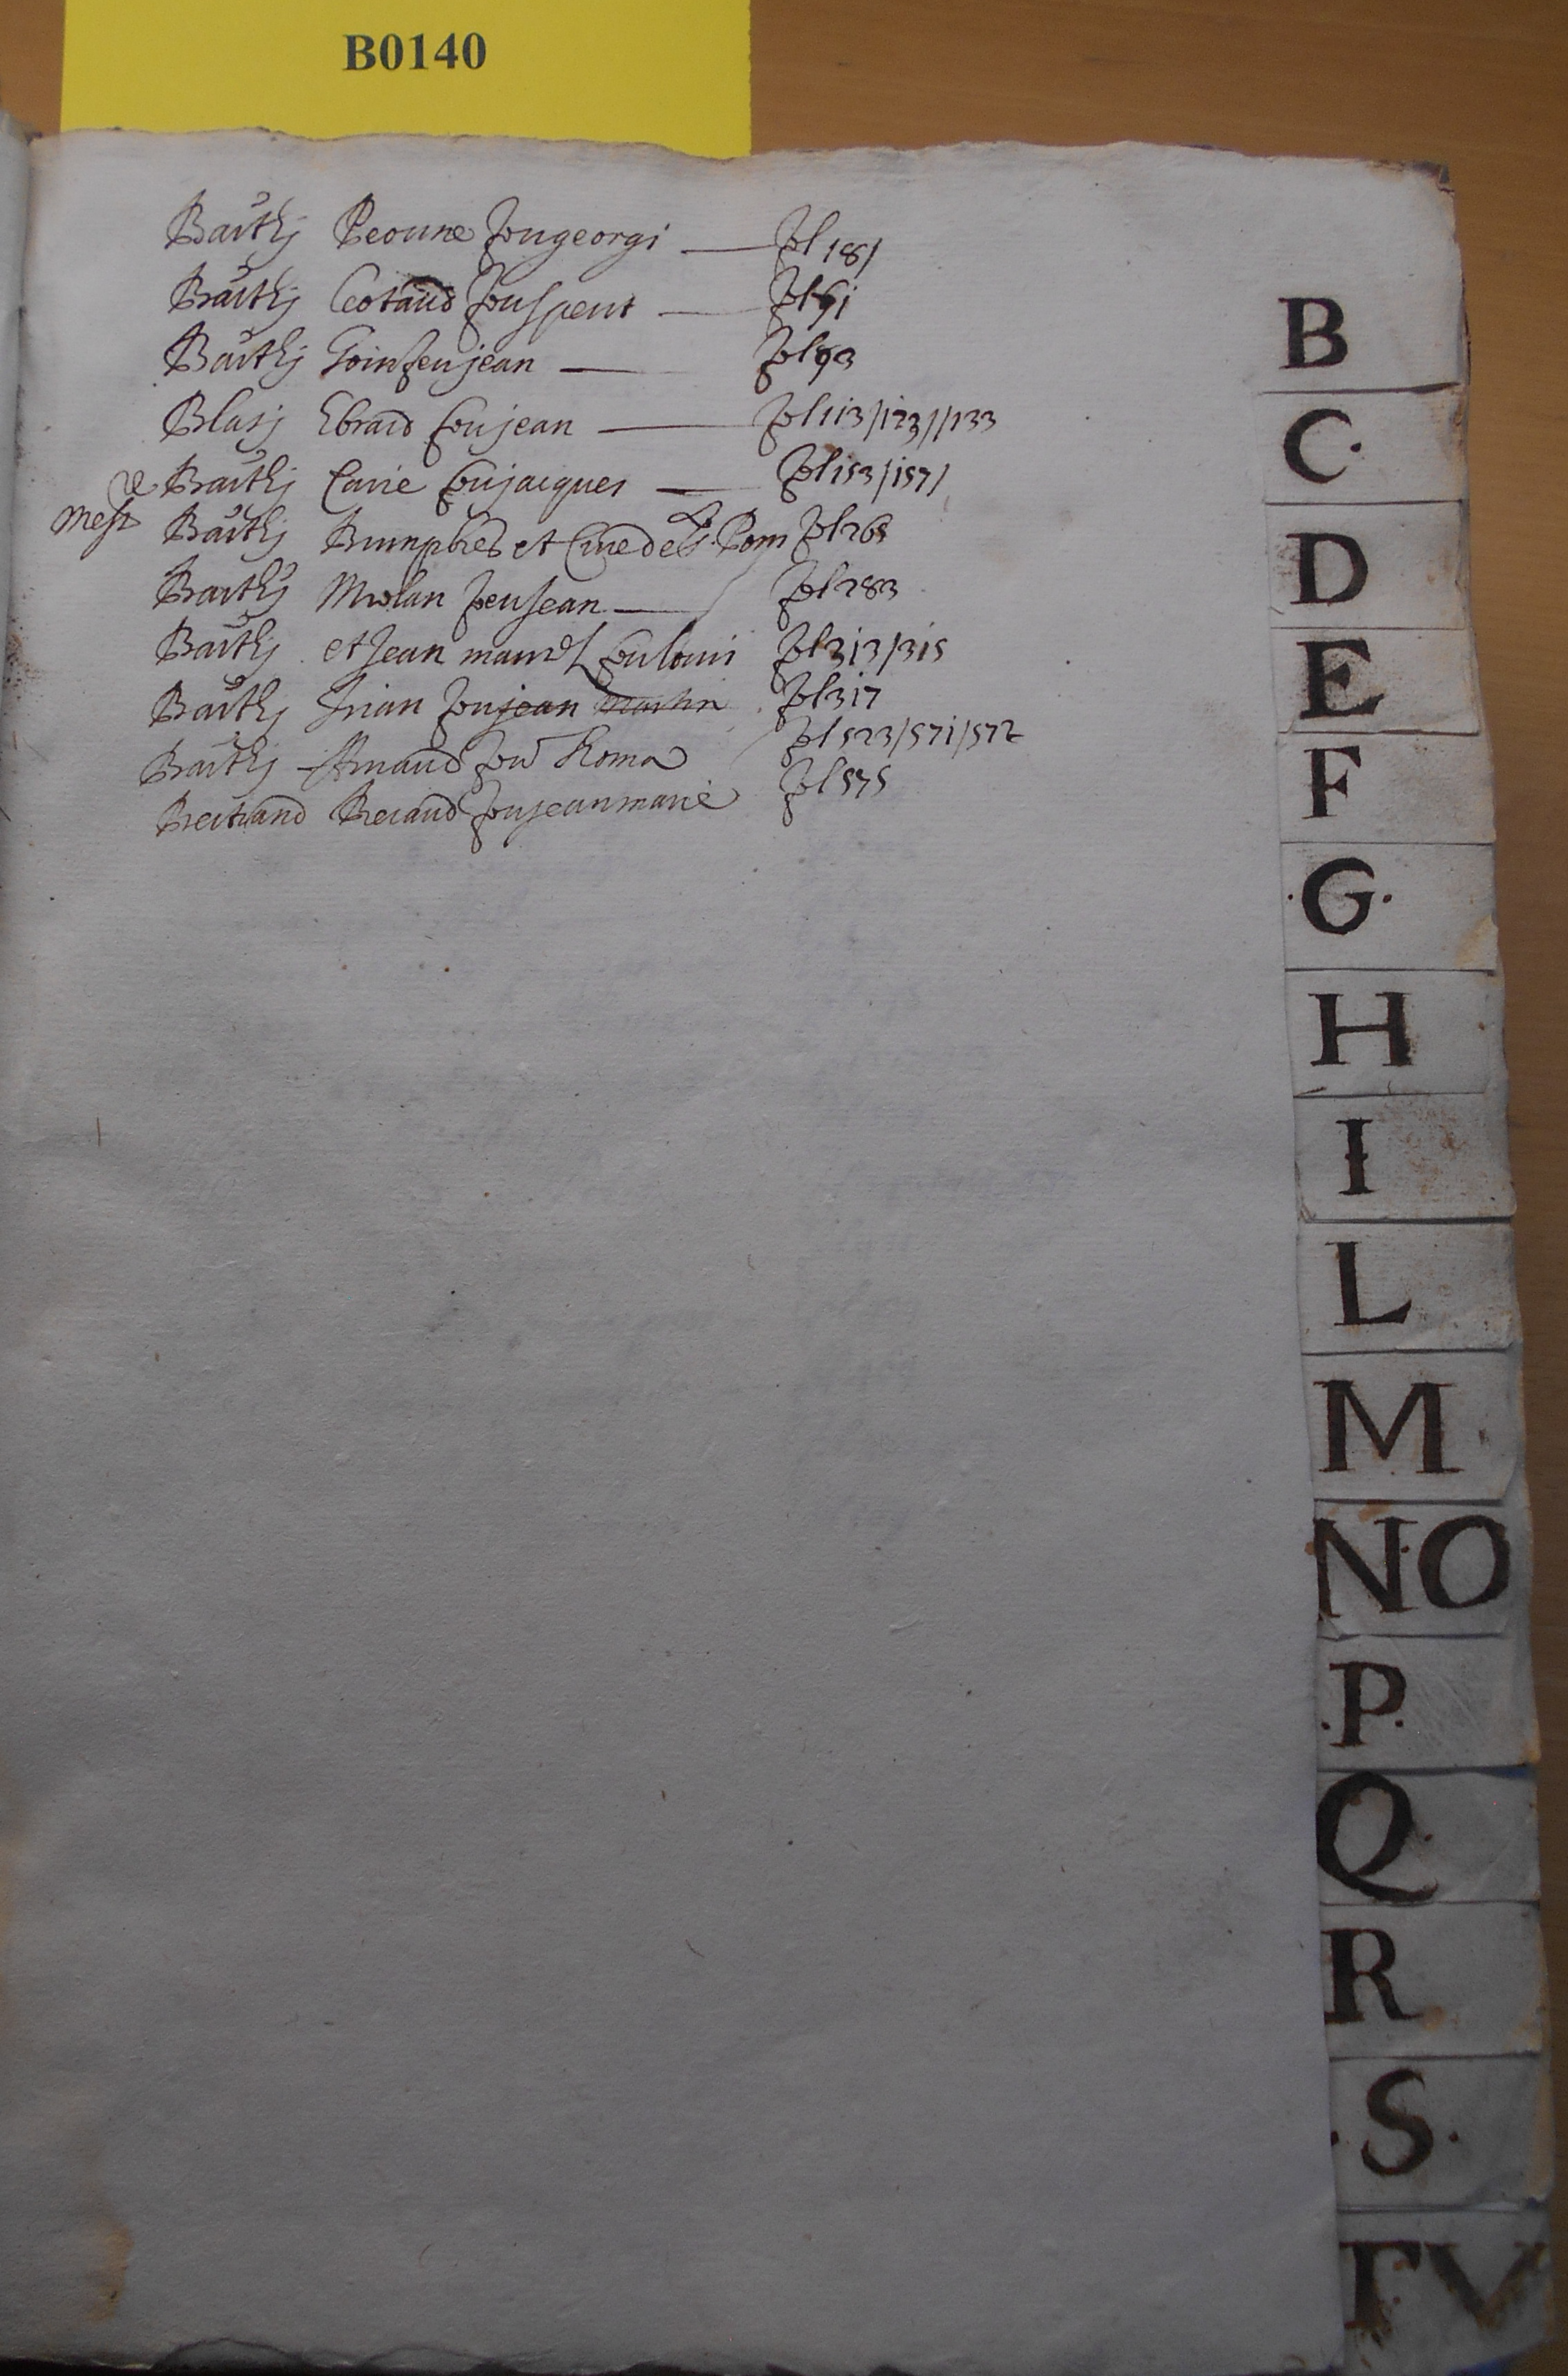 B0140
Barthj Peoune fougeorgi — fol 181
Barthj Cotaud fou — fol 91
Barthj Goin feu jean — fol 93
Blasj Ebrard fou jean — fol 113/123//133
Barthj Carie fou jacques — fol 153/157/
Mess.re Barthj et Curé de Pom fol 265
Barthj Molan feu Jean — fol 283
Barthj et Jean fou louis fol 313/315
Barthj fou jean fol 317
Barthj Arnaud fou Thoma fol 523/571/572
Bertrand Beraud fou jeanmarie fol 575
B
C.
D
E
F
.G.
H
I
L
M
N.O
.P.
Q.
R
.S.
TV